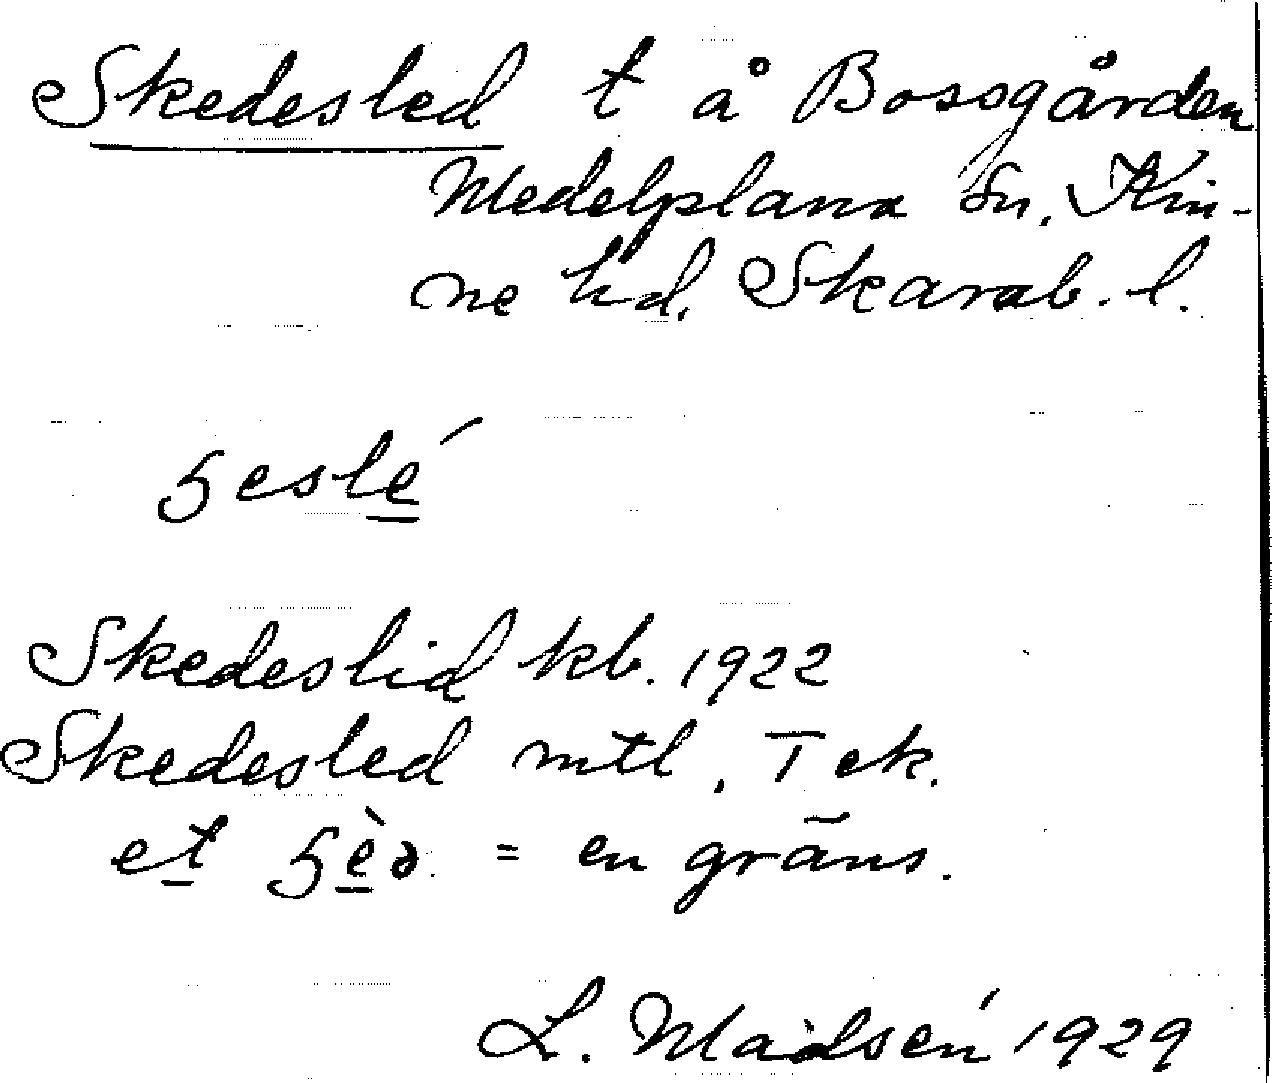 Skedesled t å Bossgården
Medelplana sn, Kin-
ne hd, Skarab. l.
ɧeslé
Skedeslid kb. 1922
Skedesled mtl, T ek.
et ɧèə = en gräns.
L. Madsén 1929